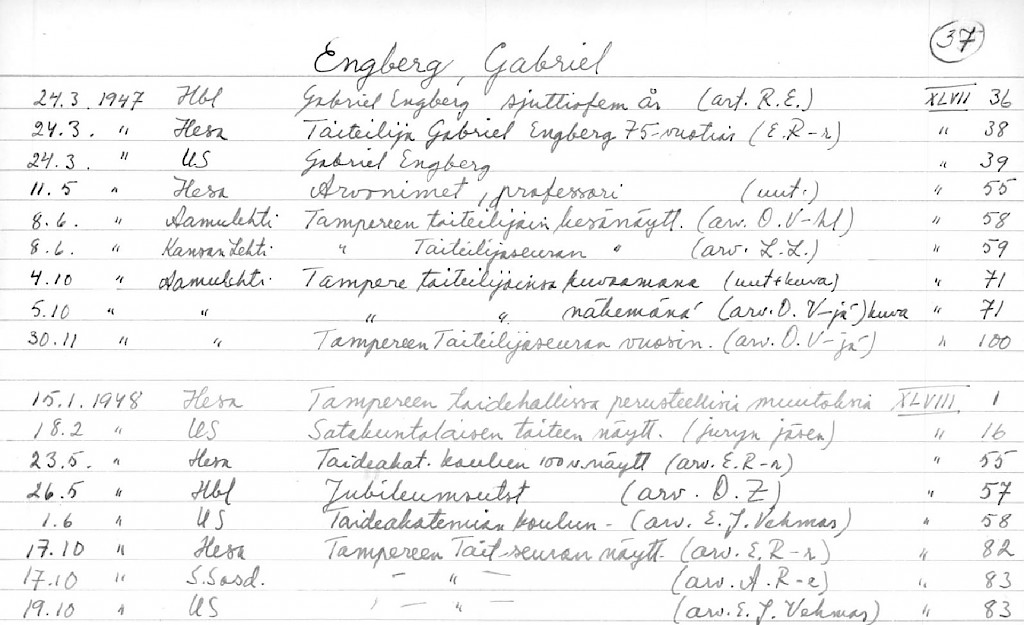 37
Engberg, Gabriel
24.3. 1947 Hbl Gabriel Engberg sjuttiofem år (art. R.E.) XLVII 36
24.3. " Hesa Taiteilija Gabriel Engberg 75-vuotias (E.R-r) " 38
24.3. " US Gabriel Engberg " 39
11.5 " Hesa Arvonimet, professori (uut.) " 55
8.6. " Aamulehti Tampereen taiteilijain kesänäytt. (arv. O.V-hl) " 58
8.6. " Kansan Lehti " Taiteilijaseuran " (arv. L.L.) " 59
4.10 " Aamulehti Tampere taiteilijainsa kuvaamana (uut+kuva) " 71
5.10 " " " " näkemänä (arv. O.V-jä) kuva " 71
30.11 " " Tampereen Taiteilijaseuran vuosin. (arv. O.V-jä) " 100
15.1. 1948 Hesa Tampereen taidehallissa perusteellisia muutoksia XLVIII 1
18.2 " US Satakuntalaisen taiteen näytt. (juryn jäsen) " 16
23.5. " Hesa Taideakat. koulun 100 v. näytt (arv. E.R-r) " 55
26.5 " Hbl Jubileumsutst (arv. O.Z) " 57
1.6 " US Taideakatemian koulun - (arv. E.J. Vehmas) " 58
17.10 " Hesa Tampereen Tait-seuran näytt. (arv. E.R-r) " 82
17.10 " S.Sosd. - " - (arv. A.R-e) " 83
19.10 " US - " - (arv. E.J. Vehmas) " 83